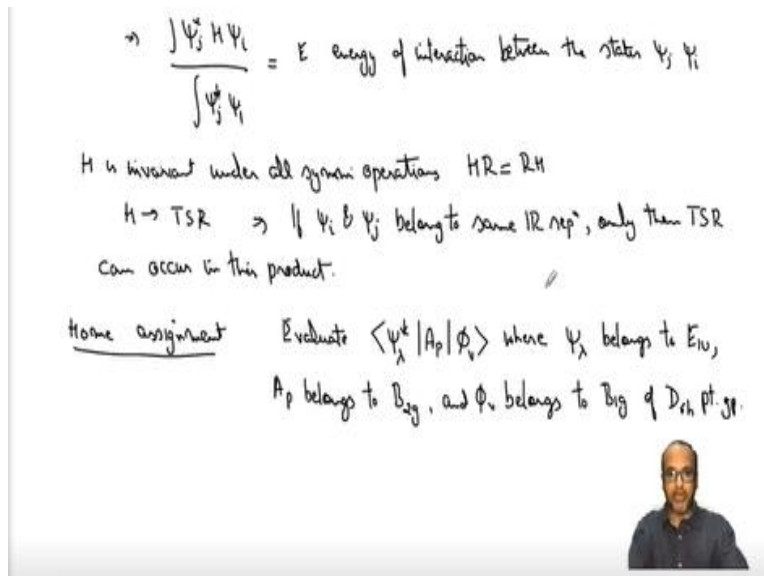 ⇒ ∫ψj* H ψi / ∫ψj* ψi = E energy of interaction between the states ψj ψi
H is invariant under all symm operations HR = RH
H → TSR ⇒ If ψi & ψj belong to same IR repⁿ, only then TSR
can occur in this product.
Home assignment Evaluate ⟨ψλ*|Ap|ϕν⟩ where ψλ belongs to E1u,
Ap belongs to B2g, and ϕν belongs to B1g of D6h pt. gp.